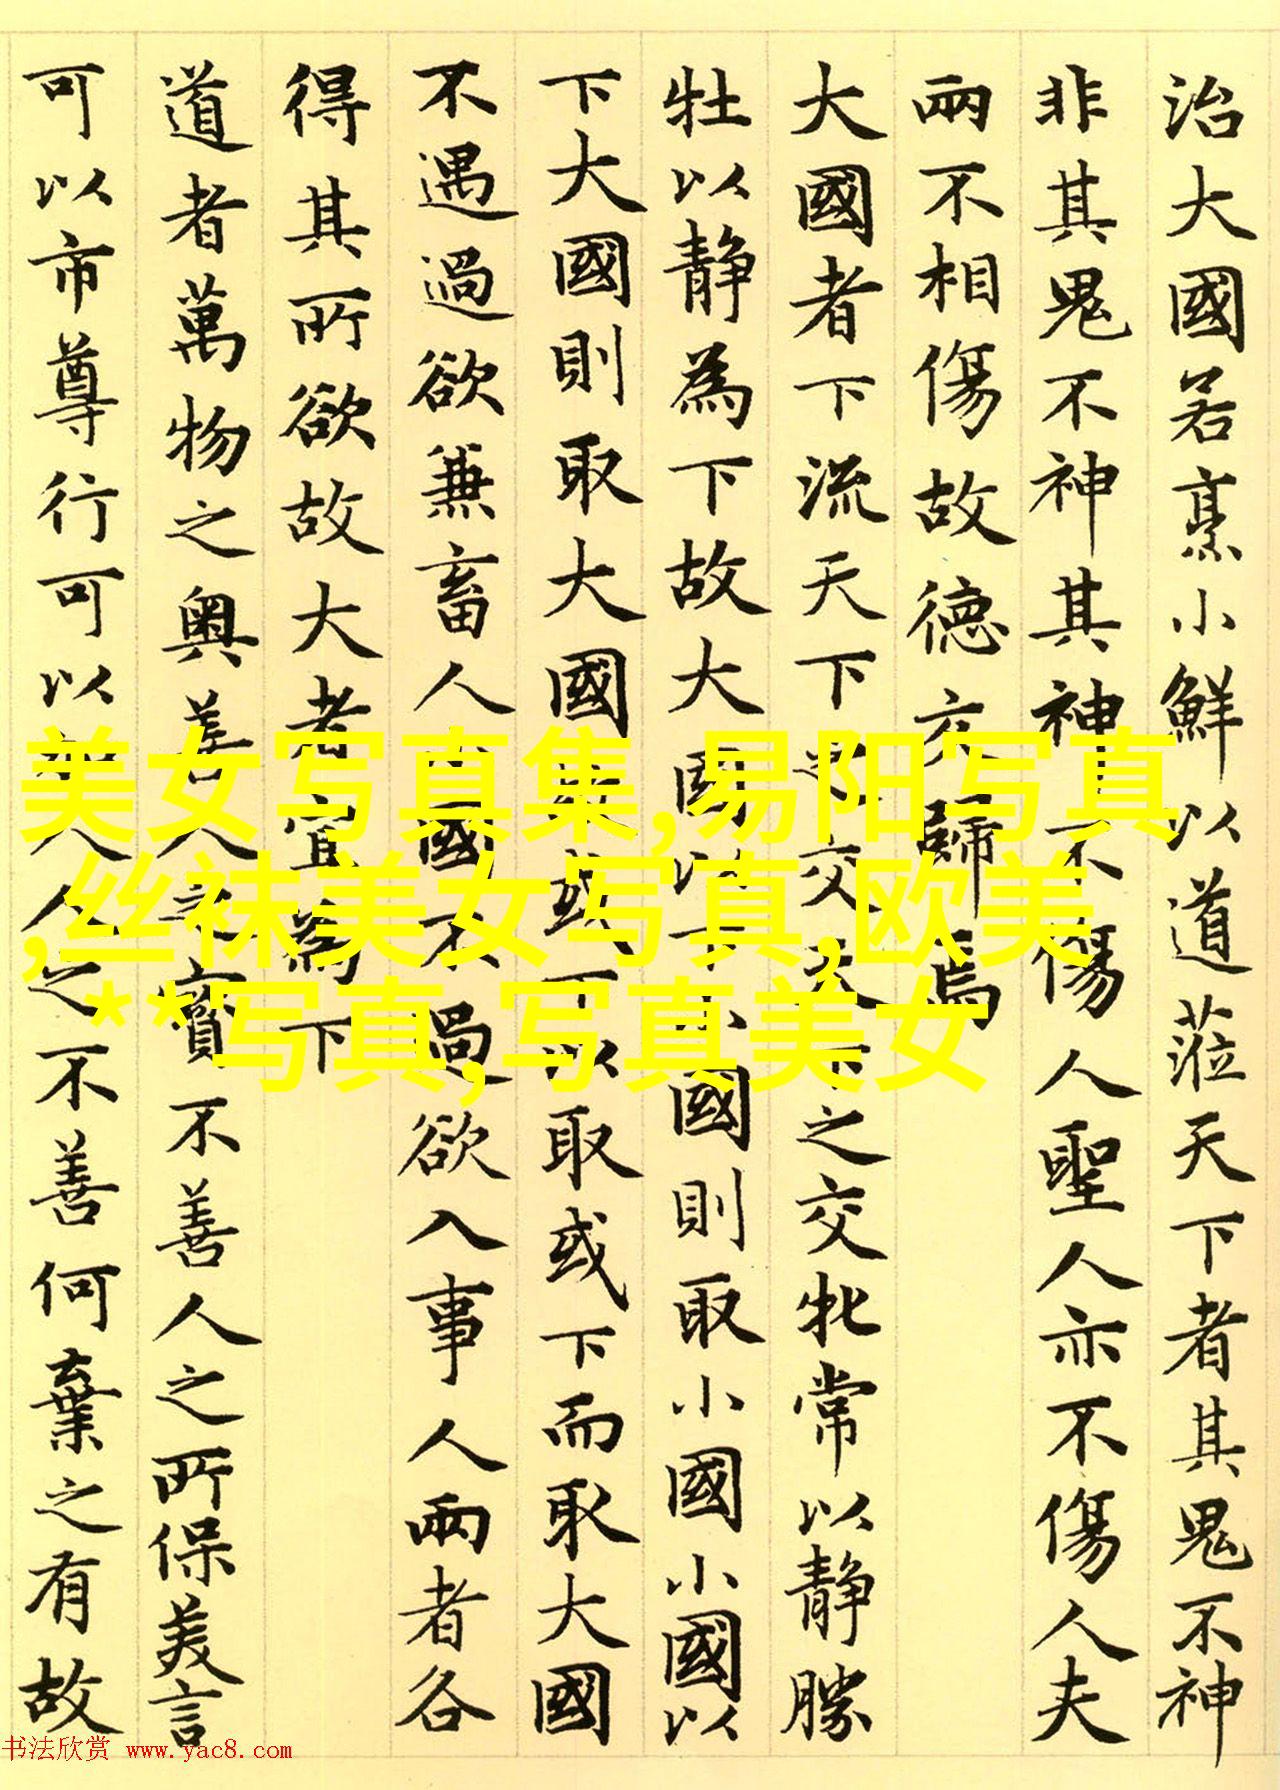 治大國若烹小鮮以道蒞天下者其鬼不神
非其鬼不神其神不傷人聖人亦不傷人夫
兩不相傷故德交歸焉
大國者下流天下之交天下之交牝常以静勝
牡以静為下故大國以下小國則取小國小國以
下大國則取大國故或下以取或下而取大國
不遇過欲兼畜人國不過欲入事人兩者各
得其所欲故大者宜為下
道者萬物之奥善人之寳不善人之所保美言
可以市尊行可以加人人之不善何棄之有故
美女写真集,易阳写真
,丝袜美女写真,欧美
**写真,写真美女
书法欣赏 www.yac8.com